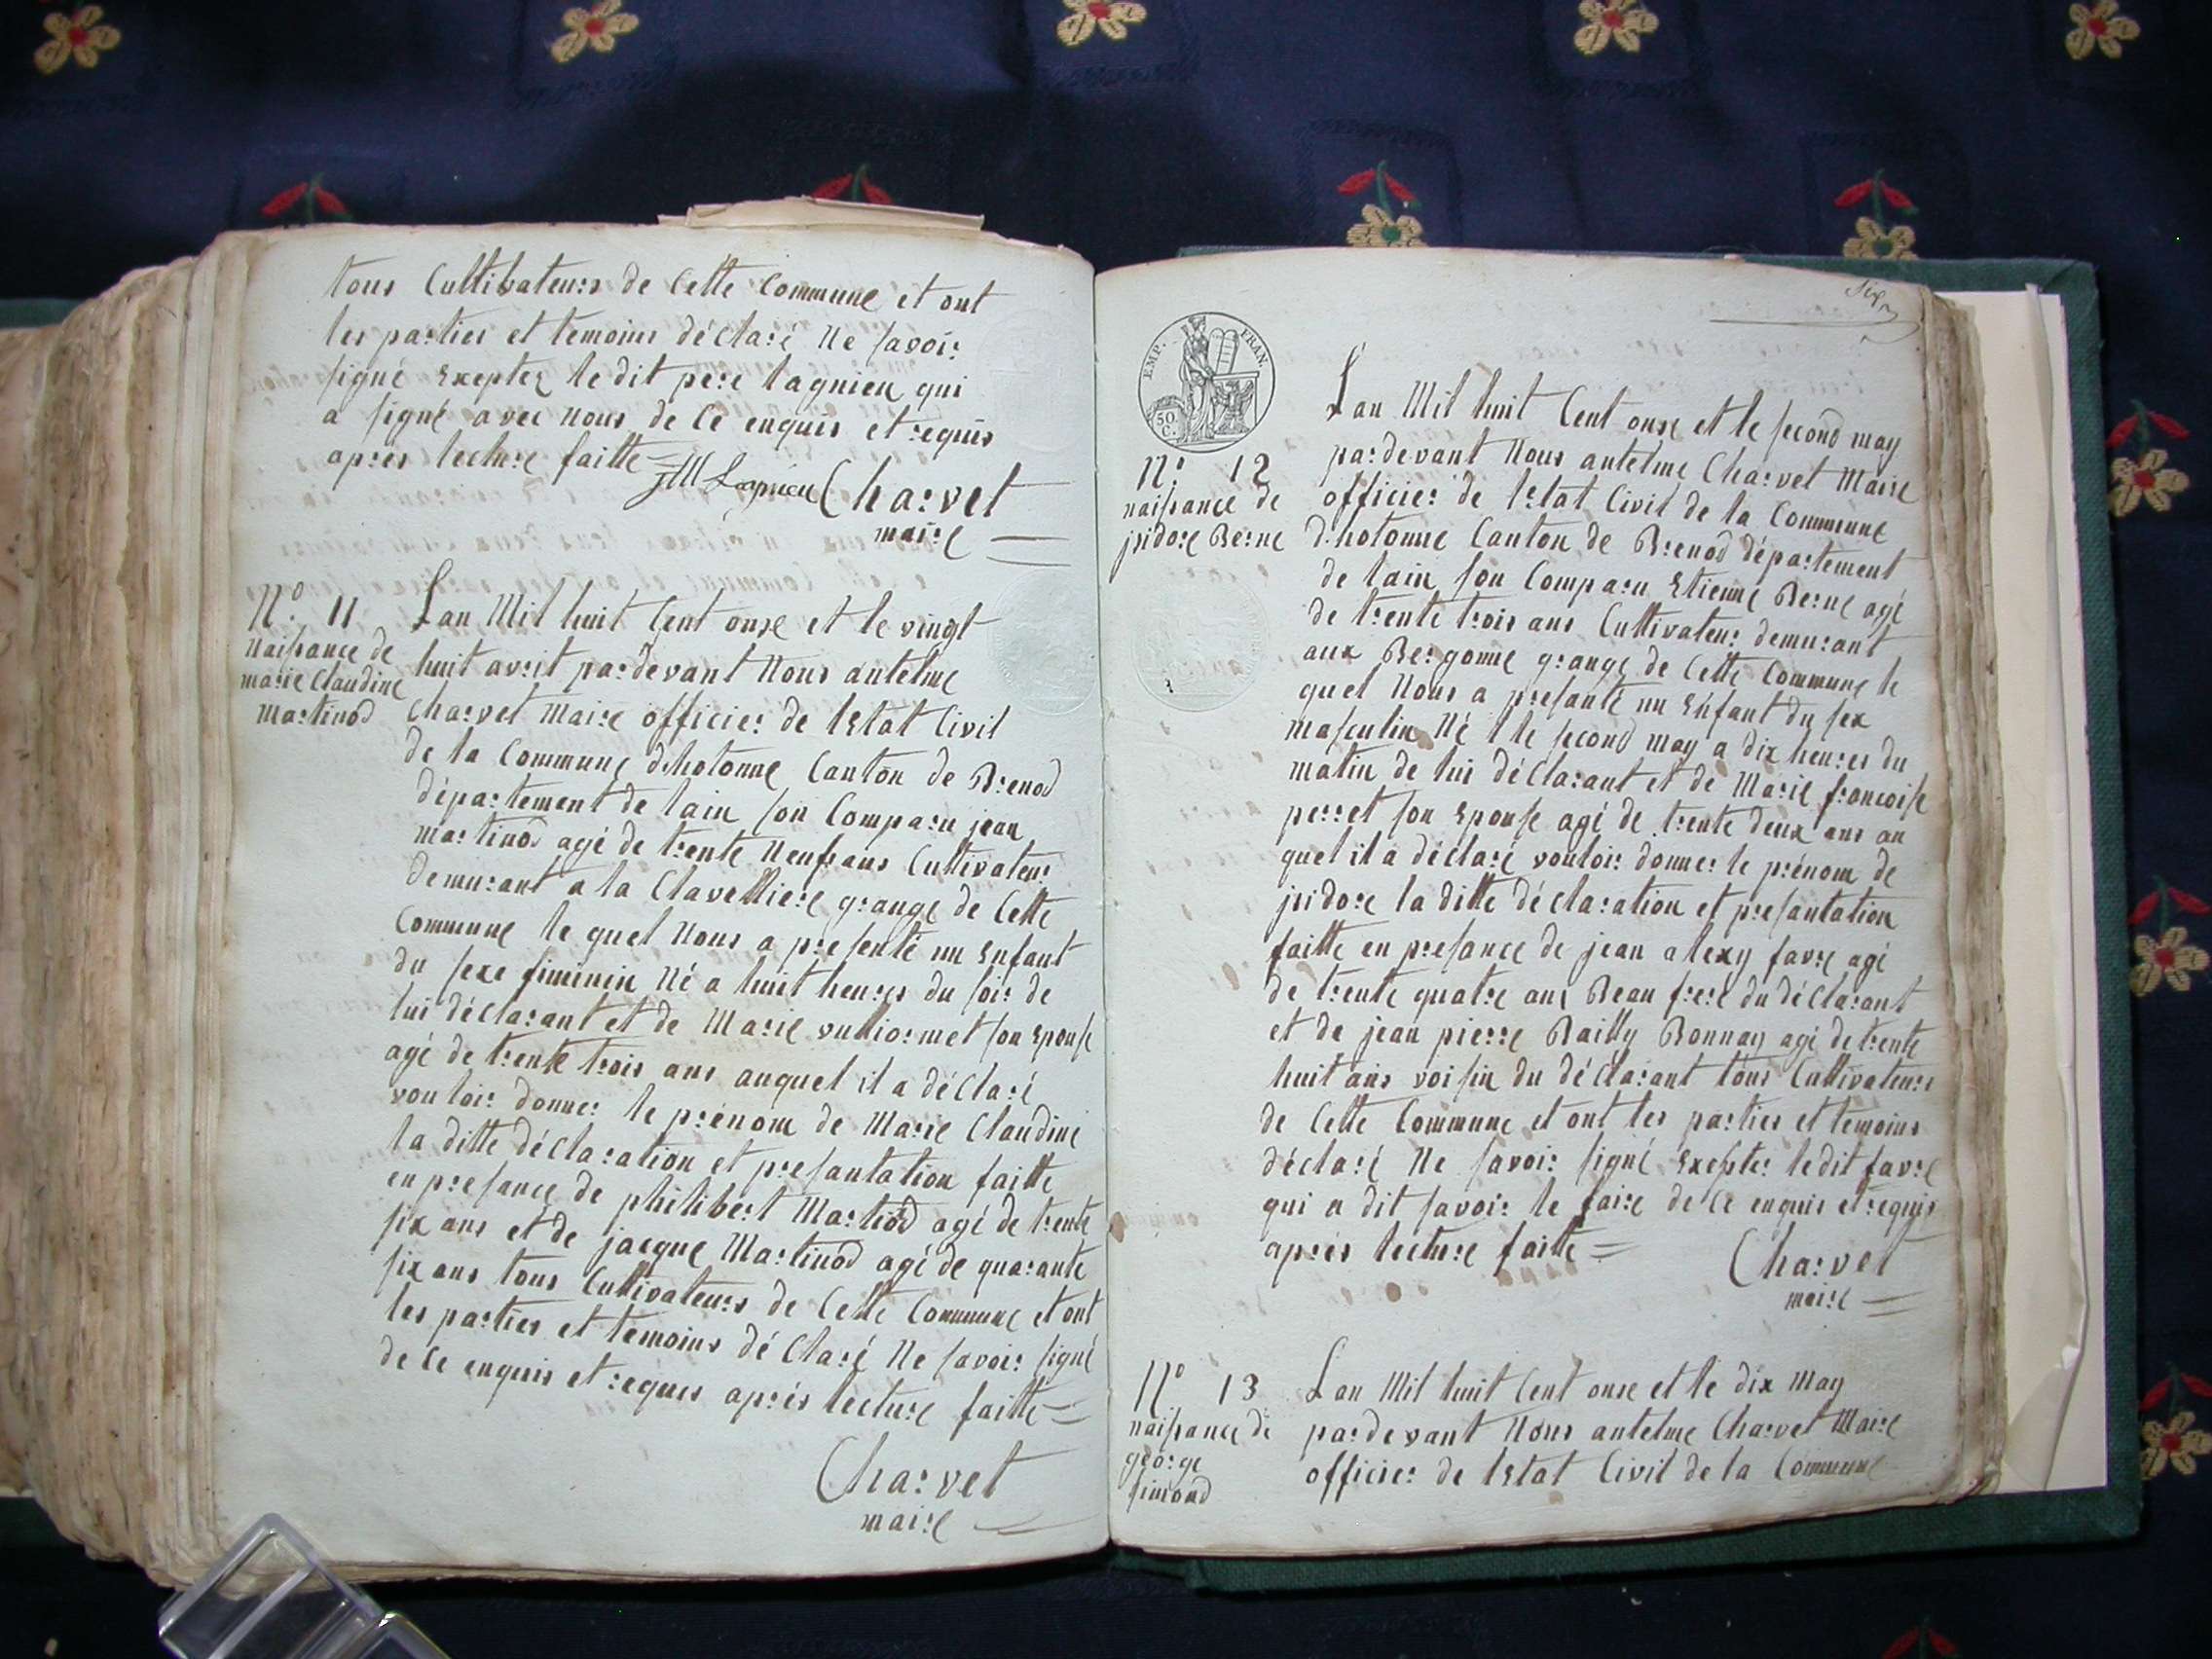 tous Cultivateurs de Cette Commune et ont
les parties et temoins déclaré Ne savoir
signé Exeptez le dit pere lagnieu qui
a signé avec nous de Ce enquis et requis
apres lecture faitte =
Lagnieu Charvet
maire
N.º 11
Naissance de
marie Claudine
Martinod
Lan Mil huit Cent onze et le vingt
huit avril par devant Nous antelme
Charvet Maire officier de lEtat Civil
de la Commune dhotonne Canton de Brenod
département de lain son Comparu jean
martinod agé de trente Neuf ans Cultivateur
demurant a la Clavelliere grange de Cette
Commune le quel Nous a presenté un Enfant
du sexe fiminin Né a huit heures du soir de
lui déclarant et de Marie vulliormet son Epouse
agé de trente trois ans auquel il a déclaré
vouloir donner le prénom de Marie Claudine
la ditte déclaration et presantation faitte
en presance de philibert Martiod agé de trente
six ans et de jacque Martinod agé de quarante
six ans tous Cultivateurs de Cette Commune et ont
les parties et temoins déClaré Ne savoir signé
de Ce enquis et requis aprés lecture faitte =
Charvet
maire
EMP. FRAN.
50 C.
N.º 12
naissance de
isidore Berne
Lan Mil huit Cent onze et le second may
par devant Nous antelme Charvet Maire
officier de lEtat Civil de la Commune
dhotonne Canton de Brenod département
de lain son Comparu Etienne Berne agé
de trente trois ans Cultivateur demurant
aux Bergonne grange de Cette Commune le
quel Nous a presanté un Enfant du sex
masculin Né l le second may a dix heures du
matin de lui déclarant et de Marie francoise
perret son Epouse agé de trente deux ans au
quel il a déclaré vouloir donner le prénom de
isidore la ditte déclaration et presantation
faitte en presance de jean alexy favre agé
de trente quatre ans Beau frere du déclarant
et de jean pierre Bailly Bonnay agé de trente
huit ans voisin du déclarant tous Cultivateurs
de Cette Commune et ont les parties et temoins
déclaré Ne savoir signé Exepter le dit favre
qui a dit savoir le faire de Ce enquis et requis
aprés lecture faitte =
Charvet
maire
N.º 13
naissance de
george
simond
Lan Mil huit Cent onze et le dix May
par devant Nous antelme Charvet Maire
officier de lEtat Civil de la Commune